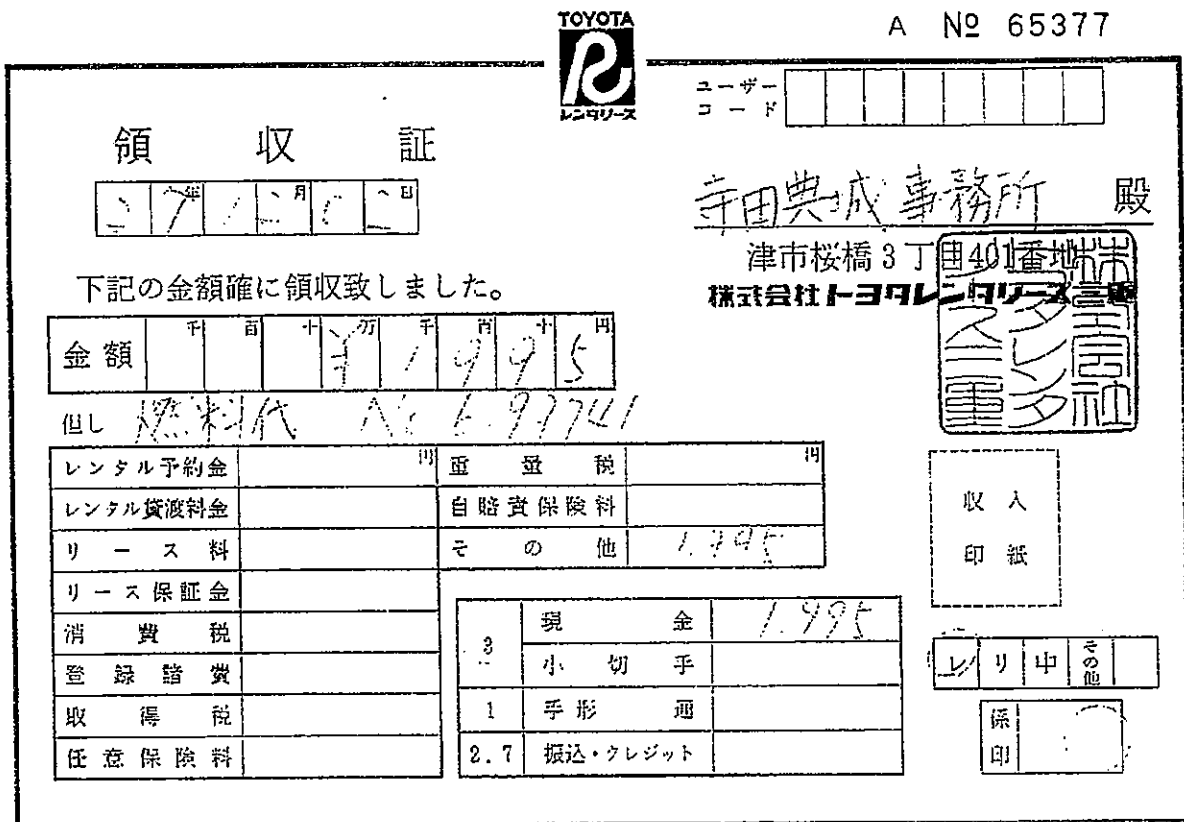 TOYOTA
レンタリース
A № 65377
ユーザー
コード
領収証
年 月 日
寺田典城事務所 殿
津市桜橋3丁目401番地
株式会社トヨタレンタリース三重
下記の金額確に領収致しました。
金額 千 百 十 万 千 百 十 円
¥1995
但し 燃料代
レンタル予約金 円 重量税 円
レンタル貸渡料金 自賠責保険料
リース料 その他 1.995
リース保証金
消費税
登録諸費
取得税
任意保険料
3 現金 1.995
小切手
1 手形 通
2.7 振込・クレジット
収入
印紙
レ リ 中 その他
係
印